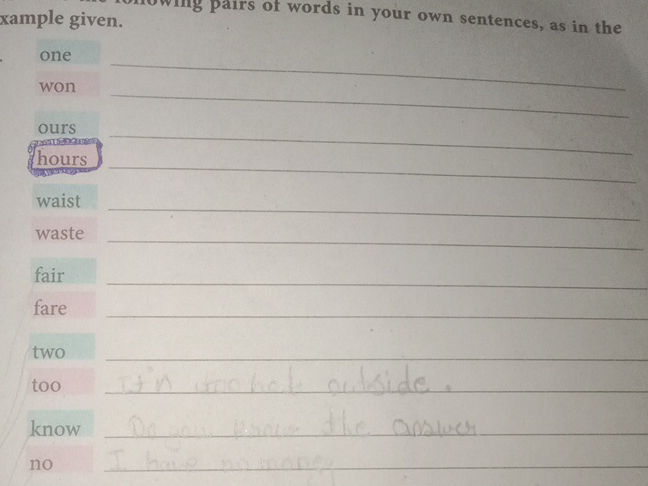 following pairs of words in your own sentences, as in the
xample given.
one
won
ours
hours
waist
waste
fair
fare
two
too It'n too hot outside.
know Do you know the answer
no I have no money